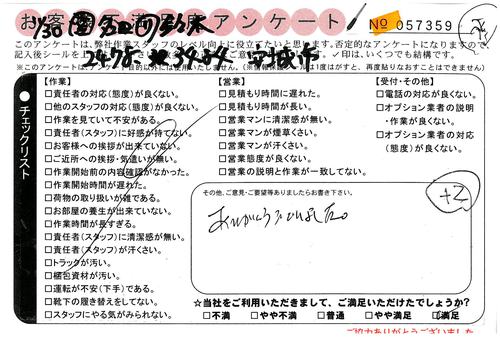 お客様満足度アンケート
No 057359
このアンケートは、弊社作業スタッフのレベル向上に役立てたいと思います。否定的なアンケートになりますので、
記入後シールを上
✓印は、いくつでも結構です。
【作業】
□責任者の対応(態度)が良くない。
□他のスタッフの対応(態度)が良くない。
□作業を見ていて不安がある。
□責任者(スタッフ)に好感が持てない。
□お客様への挨拶が出来ていない。
□ご近所への挨拶・気遣いが無い。
□作業開始前の内容確認がなかった。
□作業開始時間が遅れた。
□荷物の取り扱いが雑である。
□お部屋の養生が出来ていない。
□作業時間が長すぎる。
□責任者(スタッフ)に清潔感が無い。
□責任者(スタッフ)が汗くさい。
□トラックが汚い。
□梱包資材が汚い。
□運転が不安(下手)である。
□靴下の履き替えをしてない。
□スタッフにやる気がみられない。
チェックリスト
【営業】
□見積もり時間に遅れた。
□見積もり時間が長い。
□営業マンに清潔感が無い。
□営業マンが煙草くさい。
□営業マンが汗くさい。
□営業態度が良くない。
□営業の説明と作業が一致してない。
【受付・その他】
□電話の対応が良くない。
□オプション業者の説明
・作業が良くない。
□オプション業者の対応
(態度)が良くない。
その他、ご意見・ご要望等ありましたらお書き下さい。
ありがとうございました。
+2
☆当社をご利用いただきまして、ご満足いただけたでしょうか?
□不満 □やや不満 □普通 □やや満足 □満足
ご協力ありがとうございました